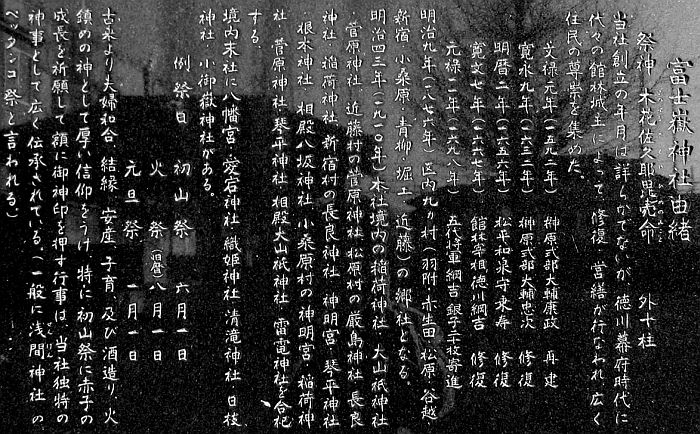 富士嶽神社由緒
祭神 木花佐久耶毘売命 外十柱
当社創立の年月は詳らかでないが、徳川幕府時代に
代々の館林城主によって、修復、営繕が行なわれ、広く
住民の尊崇を集めた。
文禄元年(一五九二年) 榊原式部大輔康政 再建
寛永九年(一六三二年) 榊原式部大輔忠次 修復
明暦二年(一六五六年) 松平和泉守乗寿 修復
寛文七年(一六六七年) 館林宰相徳川綱吉 修復
元禄一一年(一六九八年) 五代将軍綱吉 銀子二十枚寄進
明治九年(一八七六年)区内九ヵ村(羽附・赤生田・松原・谷越・
新宿・小桑原・青柳・堀工・近藤)の郷社となる。
明治四三年(一九一〇年)本社境内の稲荷神社、大山祇神社
・菅原神社、近藤村の菅原神社、松原村の厳島神社、長良
神社、稲荷神社、新宿村の長良神社、神明宮、琴平神社
・根本神社 相殿八坂神社、小桑原村の神明宮、稲荷神
社、菅原神社、琴平神社 相殿大山祇神社、雷電神社を合祀
する。
境内末社に八幡宮・愛宕神社・織姫神社・清滝神社・日枝
神社、小御嶽神社がある。
例祭日 初山祭 六月一日
火祭(旧暦)八月一日
元旦祭 一月一日
古来より夫婦和合、結縁、安産、子育、及び酒造り、火
鎮めの神として厚い信仰をうけ、特に初山祭に赤子の
成長を祈願して、額に御神印を押す行事は、当社独特の
神事として広く伝承されている。(一般に浅間神社の
ペッタンコ祭と言われる)